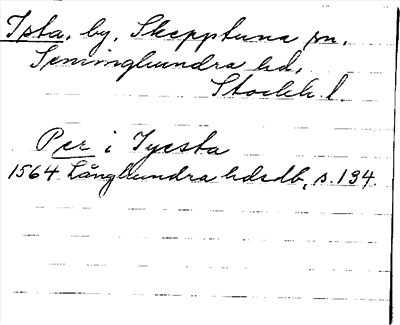 Ista, by, Skepptuna sn,
Seminghundra hd,
Stockh. l.
Per i Iyesta
1564 Långhundra hdsdb, s. 134.